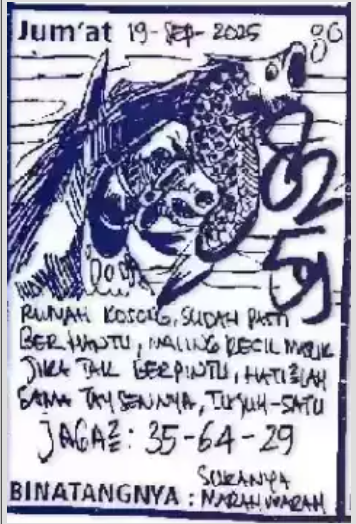 Jum'at 19-SEP-2025
RUMAH KOSONG, SUDAH PASTI
BERHANTU, MALING KECIL MASUK
JIKA TAK BERPINTU, HATI2LAH
SAMA TAYSENNYA, TUJUH-SATU
JAGA2: 35-64-29
BINATANGNYA : SUKANYA
MARAH MARAH